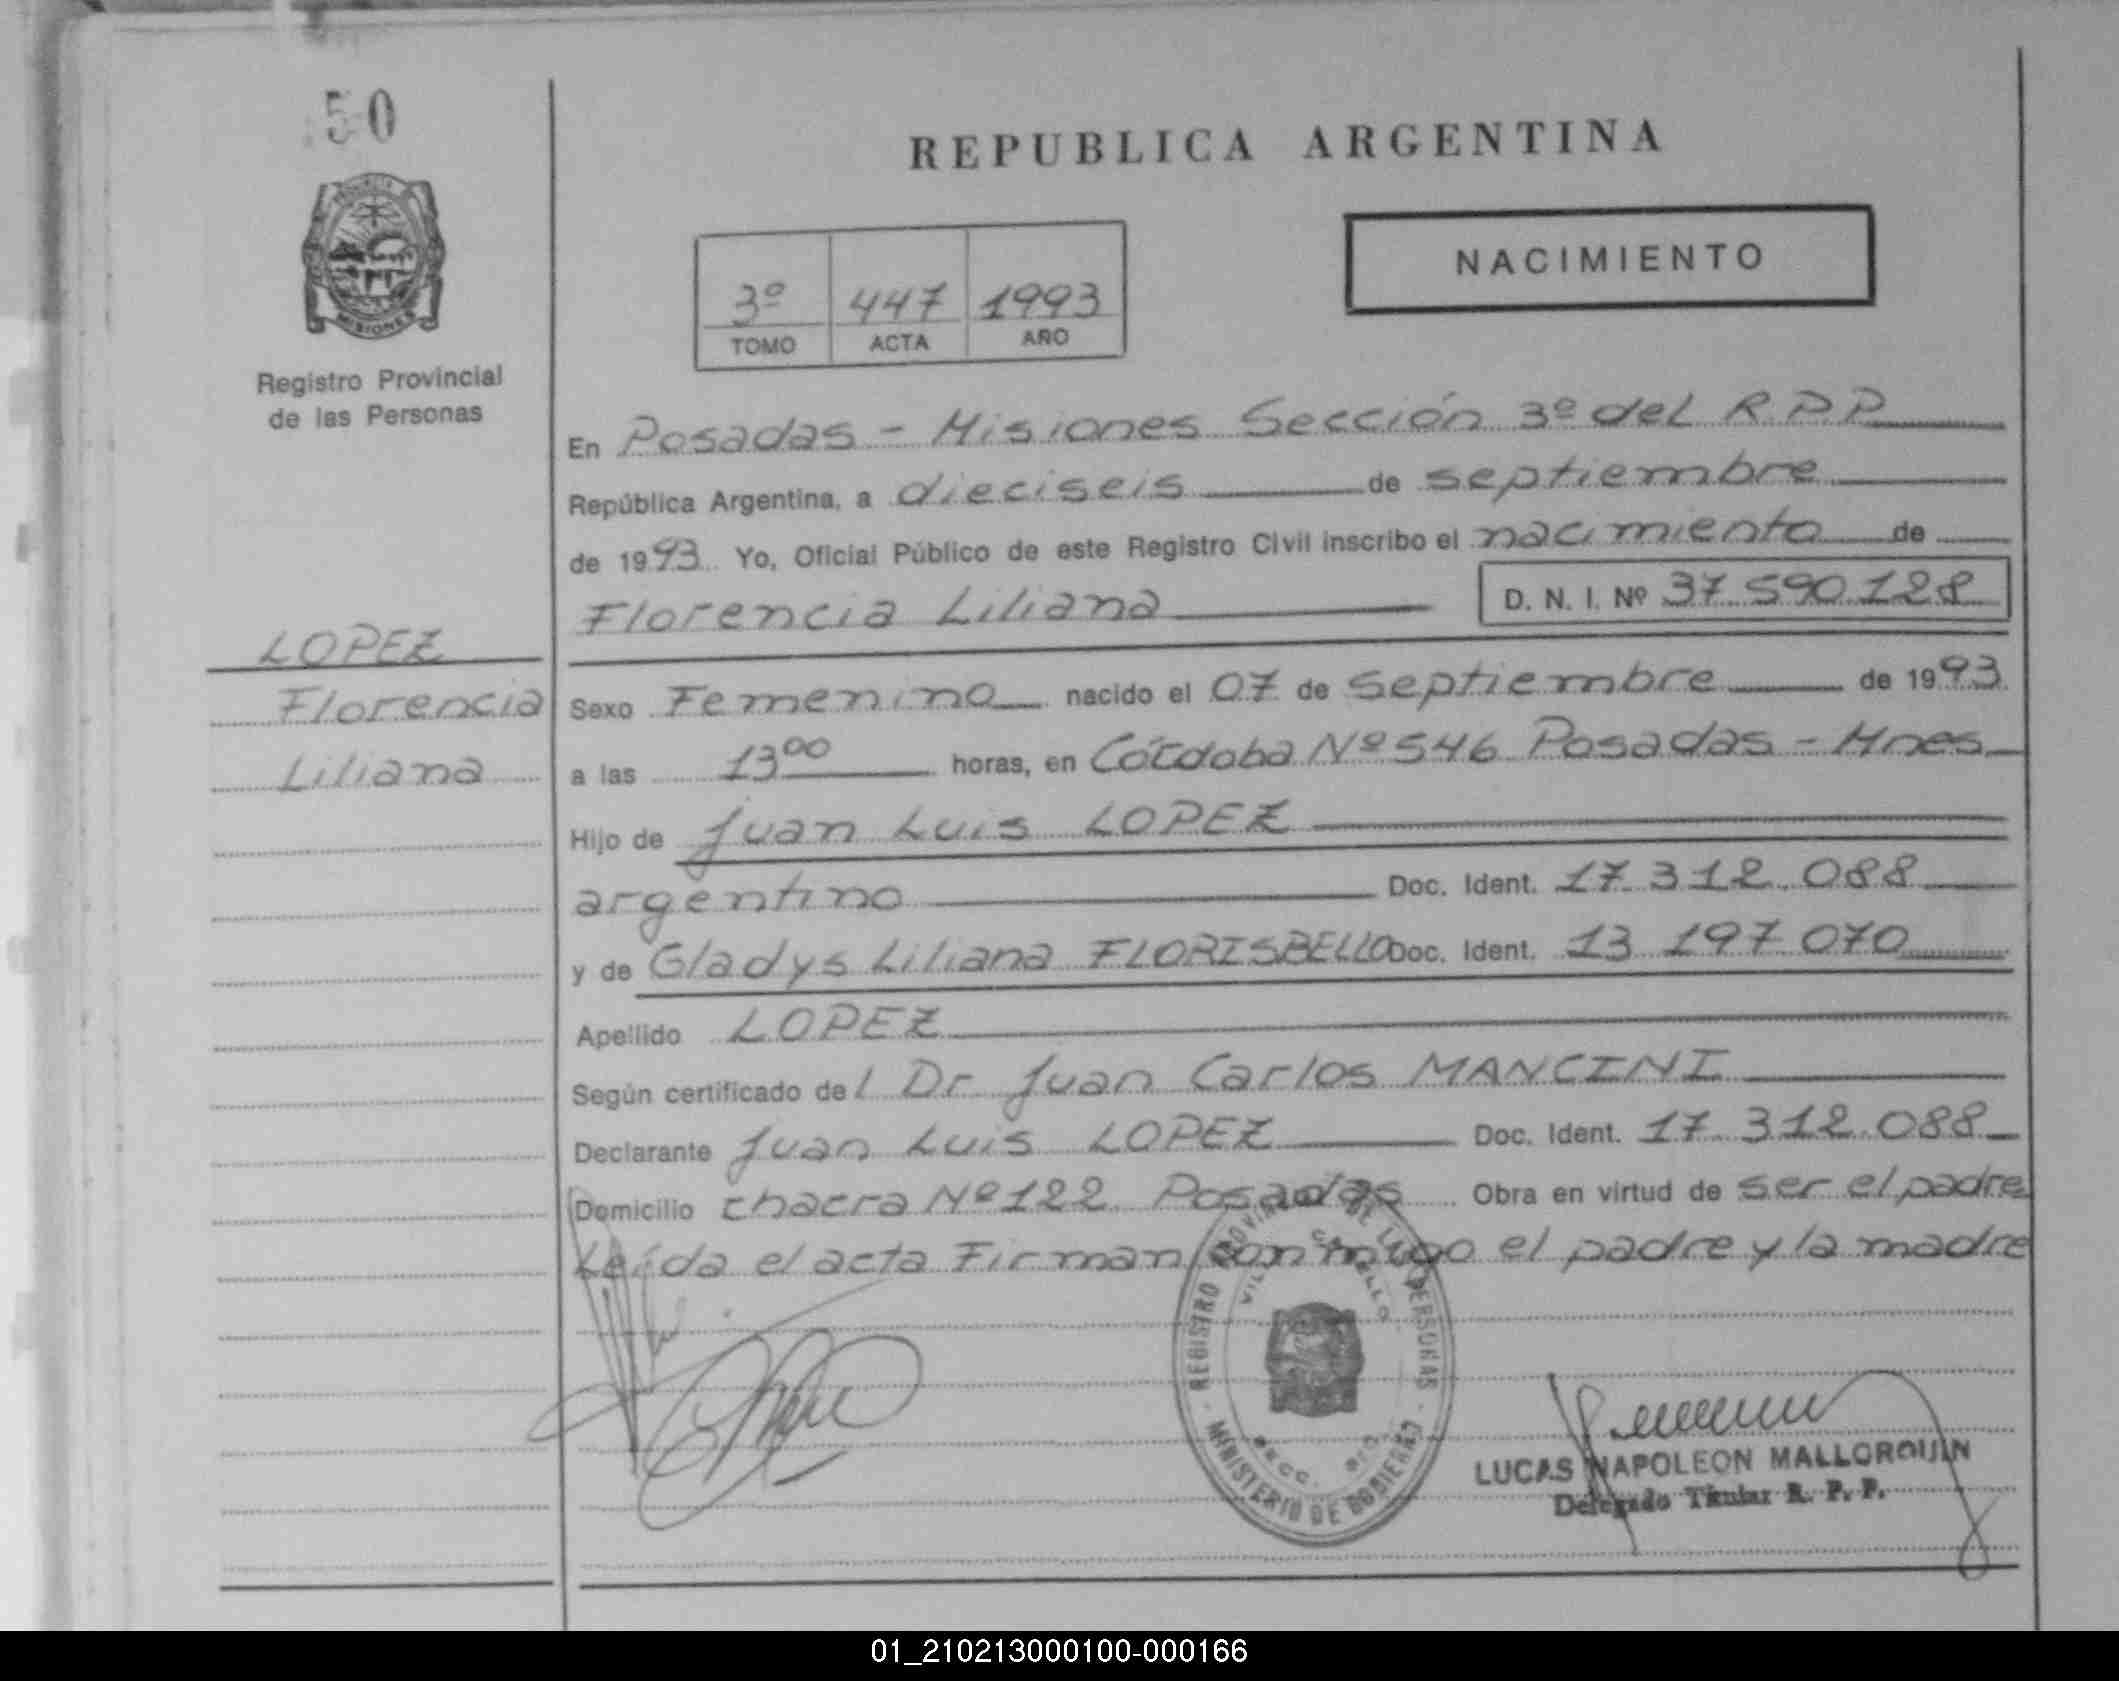 50
REPUBLICA ARGENTINA
NACIMIENTO
3º 447 1993
TOMO ACTA AÑO
MISIONES
Registro Provincial
de las Personas
En Posadas - Misiones Sección 3º del R.P.P.
República Argentina, a dieciseis de septiembre
de 1993. Yo, Oficial Público de este Registro Civil inscribo el nacimiento de
Florencia Liliana D. N. I. Nº 37.590.128
LOPEZ
Florencia
Liliana
Sexo Femenino nacido el 07 de septiembre de 1993
a las 13⁰⁰ horas, en Córdoba Nº 546 Posadas - Mnes
Hijo de Juan Luis LOPEZ
argentino Doc. Ident. 17.312.088
y de Gladys Liliana FLORISBELLO Doc. Ident. 13.197.070
Apellido LOPEZ
Según certificado del Dr Juan Carlos MANCINI
Declarante Juan Luis LOPEZ Doc. Ident. 17.312.088
Domicilio chacra Nº 122 Posadas Obra en virtud de ser el padre
Leída el acta Firman conmigo el padre y la madre
REGISTRO PROVINCIAL DE LAS PERSONAS
MINISTERIO DE GOBIERNO
LUCAS NAPOLEON MALLORQUIN
Delegado Titular R. P. P.
01_210213000100-000166